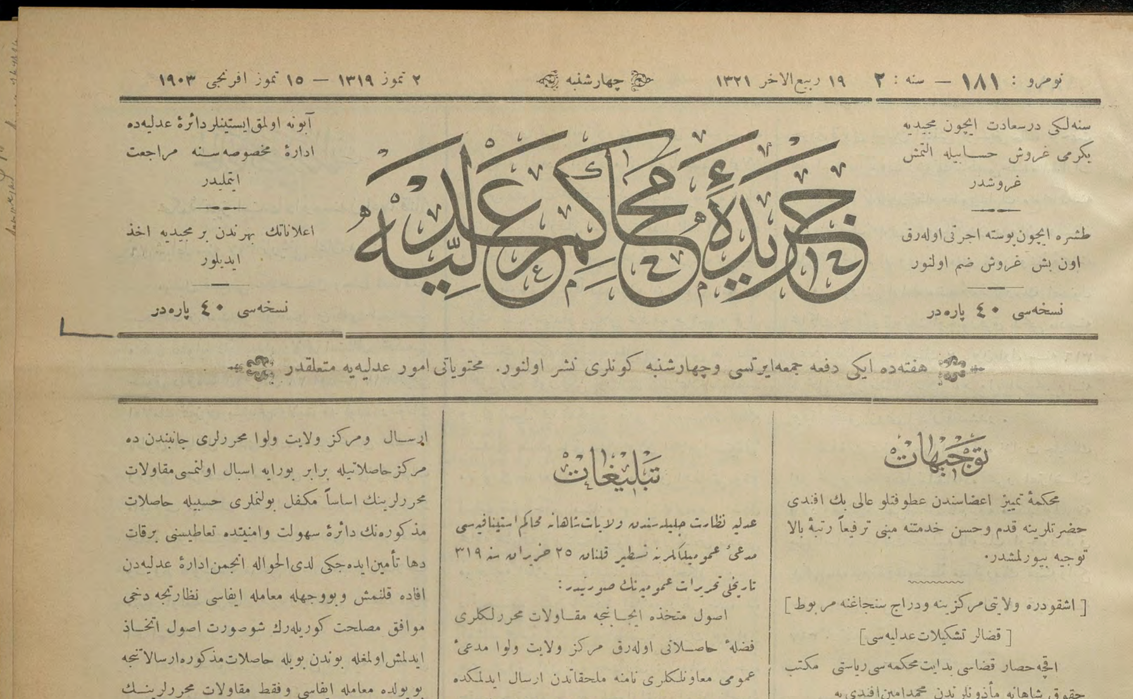 نومرو : ١٨١ — سنه : ٢
١٩ ربيع الاخر ١٣٢١
چهارشنبه
٢ تموز ١٣١٩ — ١٥ تموز افرنجى ١٩٠٣
سنه‌لكى درسعادت ايچون مجيديه
يكرمى غروش حسابيله التمش
غروشدر
طشره ايچون پوسته اجرتى اوله‌رق
اون بش غروش ضم اولنور
نسخه‌سى ٤٠ پاره‌در
جريدهٔ محاكم عدليه
آبونه اولمق ايستينلر دائرهٔ عدليه‌ده
ادارهٔ مخصوصه‌سنه مراجعت
ايتمليدر
اعلاناتك بهرندن بر مجيديه اخذ
ايديلور
نسخه‌سى ٤٠ پاره‌در
هفته‌ده ايكى دفعه جمعه‌ايرتسى وچهارشنبه كونلرى نشر اولنور. محتوياتى امور عدليه‌يه متعلقدر
توجيهات
محكمهٔ تمييز اعضاسندن عطوفتلو عالى بك افندى
حضرتلرينه قدم وحسن خدمتنه مبنى ترفيعاً رتبهٔ بالا
توجيه بيورلمشدر.
[ اشقودره ولايتى مركزينه ودراج سنجاغنه مربوط ]
[ قضالر تشكيلات عدليه‌سى ]
اقچه‌حصار قضاسى بدايت محكمه‌سى رياستى مكتب
حقوق شاهانه مأذونلرندن محمدامين افندى‌يه
تبليغات
عدليه نظارت جليله‌سندن ولايات شاهانه محاكم استينافيه‌سى
مدعئ عموميلكلرينه تسطير قلنان ٢٥ حزيران سنه ٣١٩
تاريخلى تحريرات عموميه‌نك صورتيدر :
اصول متخذه ايجابنجه مقاولات محررلكلرى
فضلهٔ حاصلاتى اوله‌رق مركز ولايت ولوا مدعئ
عمومى معاونلكلرى نامنه ملحقاتدن ارسال ايدلمكده
ارسال ومركز ولايت ولوا محررلرى جانبندن ده
مركز حاصلاتيله برابر بورايه اسبال اولنمسى مقاولات
محررلرينك اساساً مكفل بولنملرى حسبيله حاصلات
مذكوره‌نك دائرهٔ سهولت وامنيتده تعاطيسنى برقات
دها تأمين‌ايده‌جكى لدى‌الحواله انجمن‌ادارهٔ عدليه‌دن
افاده قلنمش وبووجهله معامله ايفاسى نظارتجه دخى
موافق مصلحت كوريله‌رك شوصورت اصول اتخاذ
ايدلمش‌اولمغله بوندن بويله حاصلات مذكوره‌ارسالاتنجه
بو يولده معامله ايفاسى وفقط مقاولات محررلرينك